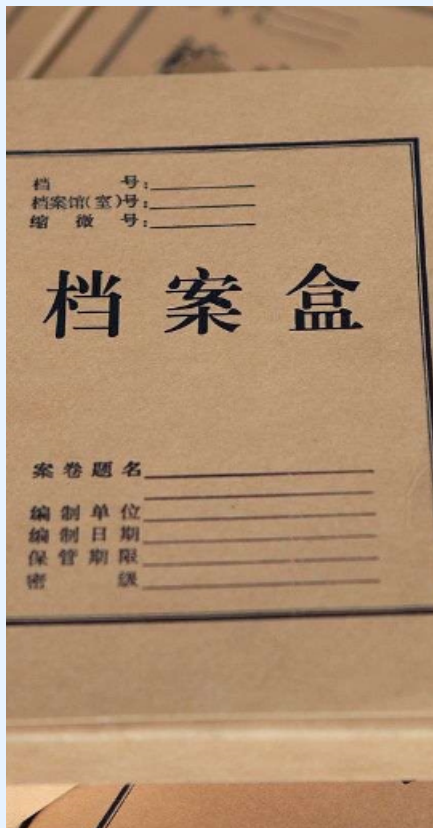 档 号:
档案馆(室)号:
缩 微 号:
档案盒
案卷题名
编制单位
编制日期
保管期限
密 级